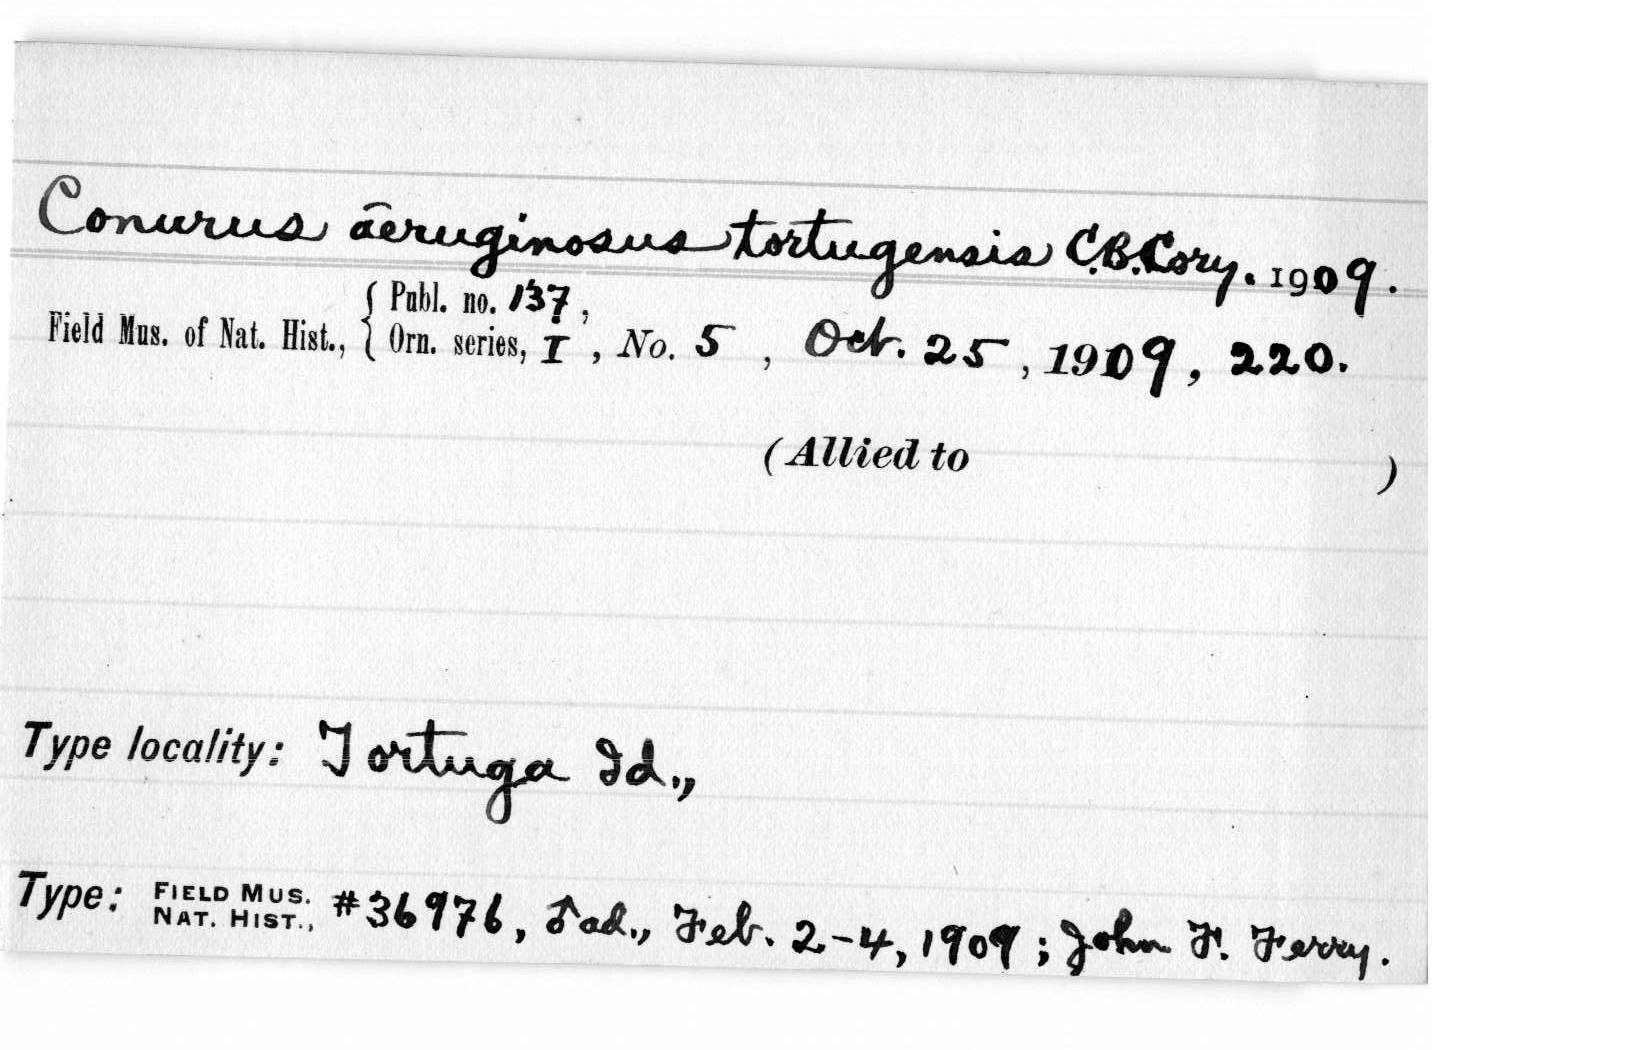 Conurus āeruginosus tortugensis C.B.Cory. 1909.
Field Mus. of Nat. Hist., { Publ. no. 137,
Orn. series, I, No. 5, Oct. 25, 1909, 220.
(Allied to )
Type locality: Tortuga Id.,
Type: FIELD MUS. NAT. HIST., #36976, ♂ad., Feb. 2-4, 1909; John F. Ferry.